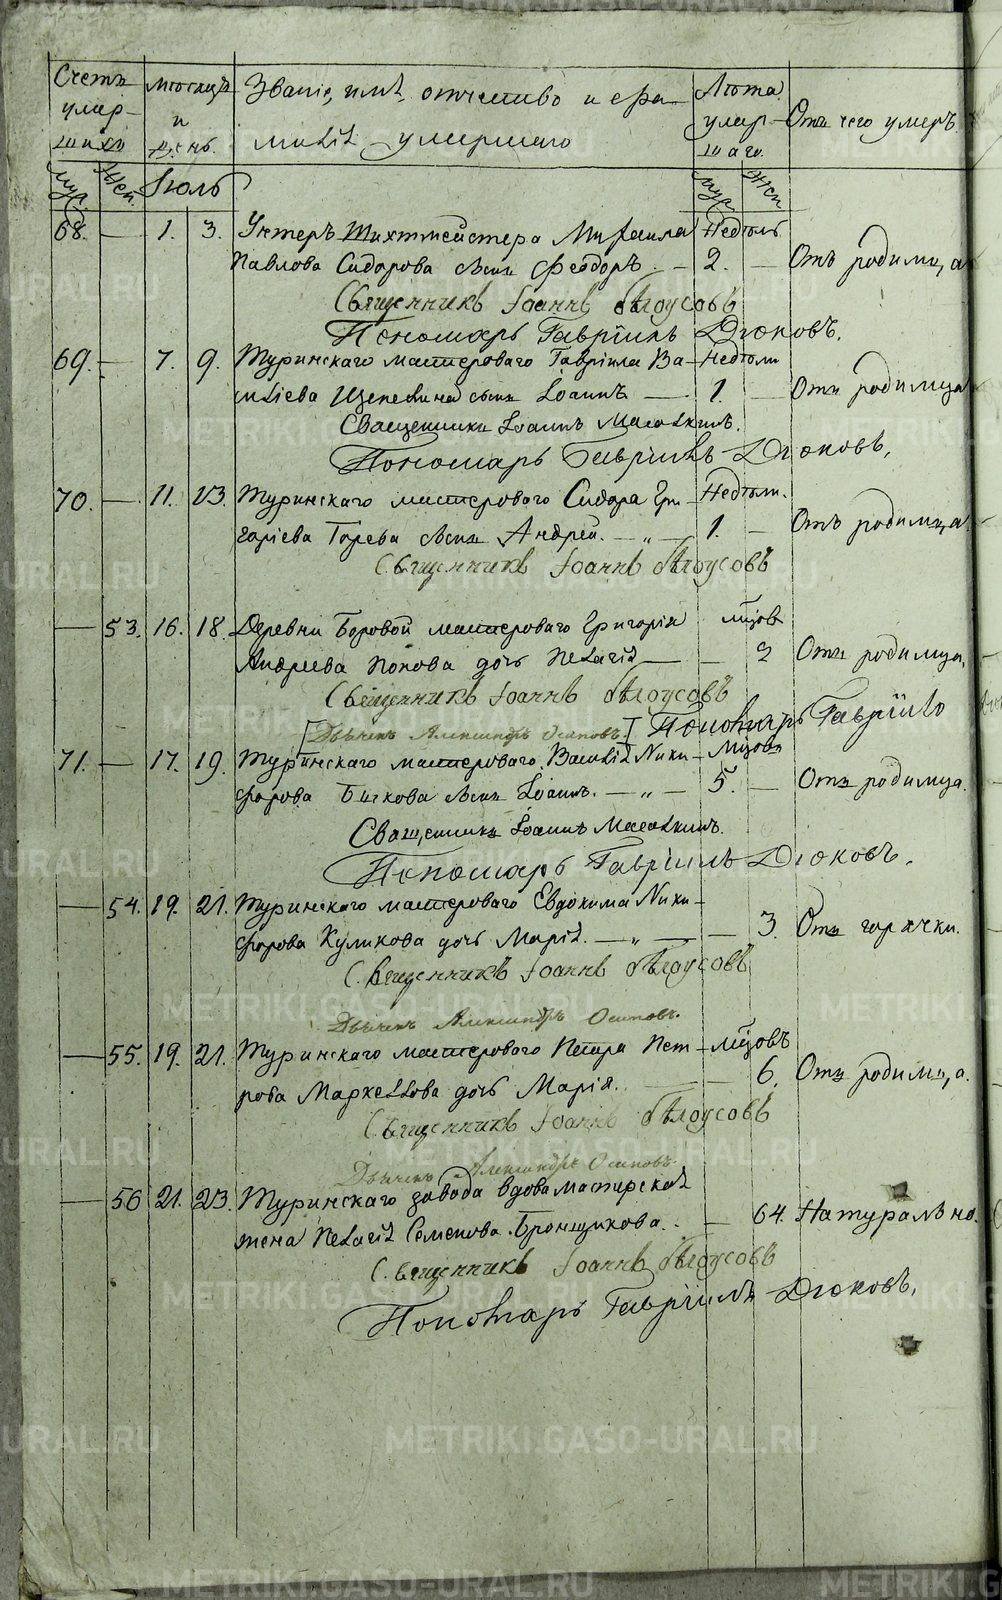 Счетъ умер-шихъ
мѣсяцъ и день
Званіе, имя, отчество и фа-
милія умершаго
Лѣта умер-шаго
Отъ чего умеръ
муж. жен. Іюль муж. жен.
68. — 1. 3. Унтеръ Шихтмейстера Михаила Недѣль
Павлова Сидорова сынъ Феодоръ. — 2. — Отъ родимца
Священникъ Іоаннъ Бѣлоусовъ
Пономарь Гавріилъ Дюковъ.
69. — 7. 9. Туринскаго мастероваго Гавріила Ва- Недѣли
силіева Щепелина сынъ Іоаннъ — 1. — Отъ родимца
Священникъ Іоаннъ
Пономарь Гавріилъ Дюковъ.
70. — 11. 13. Туринскаго мастероваго Сидора Гри- Недѣли.
горіева Горева сынъ Андрей. — „ — 1. — Отъ родимца.
Священникъ Іоаннъ Бѣлоусовъ
— 53. 16. 18. Деревни Боровой мастероваго Григорія мѣсяцовъ
Андреева Попова дочь Пелагія — — 2 Отъ родимца.
Священникъ Іоаннъ Бѣлоусовъ
Дьячекъ Александръ Осиповъ. Пономарь Гавріилъ
71. — 17. 19. Туринскаго мастероваго Василія Ники- Мѣсяцовъ
форова Бычкова сынъ Іоаннъ. — „ — 5. — Отъ родимца.
Священникъ Іоаннъ
Пономарь Гавріилъ Дюковъ.
— 54. 19. 21. Туринскаго мастероваго Евдокима Ники-
форова Куликова дочь Марія. — „ — — 3. Отъ горячки.
Священникъ Іоаннъ Бѣлоусовъ
Дьячекъ Александръ Осиповъ.
— 55. 19. 21. Туринскаго мастероваго Петра Пет- мѣсяцовъ
рова Маркеллова дочь Марія. — — 6. Отъ родимца.
Священникъ Іоаннъ Бѣлоусовъ
Дьячекъ Александръ Осиповъ.
— 56 21. 23. Туринскаго завода вдова мастерская
жена Пелагія Семенова Бронщикова. — 64. Натурально.
Священникъ Іоаннъ Бѣлоусовъ
Пономарь Гавріилъ Дюковъ.
METRIKI.GASO-URAL.RU